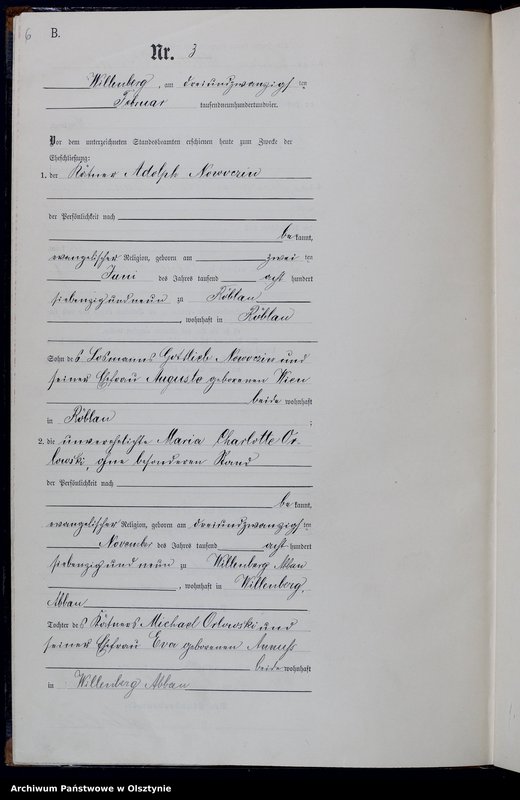 6 B.
Nr. 3
Willenberg, am dreiundzwanzigsten
Februar tausendneunhundertundvier.
Vor dem unterzeichneten Standesbeamten erschienen heute zum Zwecke der
Eheschließung:
1. der Kätner Adolph Nowoczin
der Persönlichkeit nach
bekannt,
evangelischer Religion, geboren am zwei ten
Juni des Jahres tausend acht hundert
siebenzigundneun zu Röblau
, wohnhaft in Röblau
Sohn des Losmanns Gottlieb Nowoczin und
seiner Ehefrau Auguste geborenen Wien
beide wohnhaft
in Röblau ;
2. die unverehelichte Maria Charlotte Or-
lowski, ohne besonderen Stand
der Persönlichkeit nach
bekannt,
evangelischer Religion, geboren am dreiundzwanzigsten
November des Jahres tausend acht hundert
siebenzig und neun zu Willenberg Abbau
, wohnhaft in Willenberg,
Abbau
Tochter des Kätners Michael Orlowski und
seiner Ehefrau Eva geborenen
beide wohnhaft
in Willenberg Abbau
Archiwum Państwowe w Olsztynie